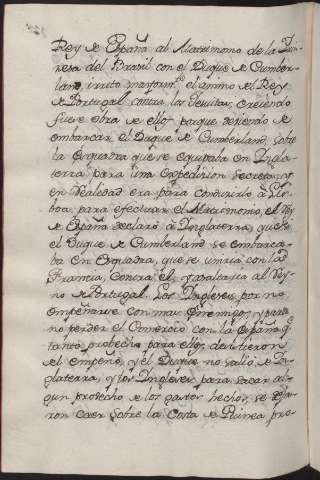 Rey de España al Matrimonio de la Prin-
cesa del Brasil con el Duque de Cumber-
land, irritó el animo del Rey
de Portugal contra los Jesuitas, creiendo
fuese obra de ellos porque debiendo se
embarcar el Duque de Cumberland, sobre
la Esquadra que se equipaba en Ingla-
terra para una Expedicion Secreta, y
en Realidad era para conducirlo à Lis-
boa para efectuar el Matrimonio, el Rey
de España declaró à Inglaterra, que si
el Duque de Cumberland se embarca-
ba en Esquadra, que se uniria con la
Francia, contra el, y asaltaria al Rey-
no de Portugal. Los Ingleses por no
empeñarse con mas Enemigos, y para
no perder el Comercio con la España q.e
tanto provecho para ellos, desistieron
de el empeño, y el Duque no salió de In-
glaterra, y los Ingleses para sacar al-
gun provecho de los gastos hechos, se deja-
ron caer sobre la Costa de Guinea pro-